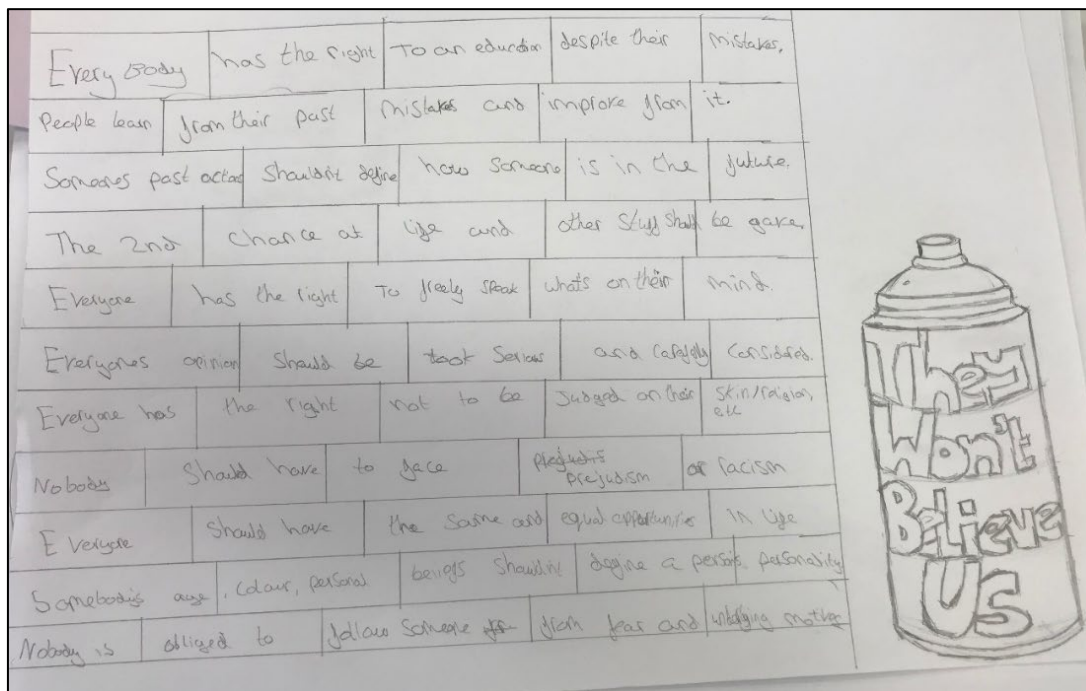 Every Body has the right To an education despite their mistakes.
People learn from their past mistakes and improve from it.
Someones past actions shouldn't define how someone is in the future.
The 2nd chance at life and other stuff should be gave.
Everyone has the right To freely speak whats on their mind.
Everyones opinion should be took serious and carefully considered.
Everyone has the right not to be Judged on their skin/religion, etc
Nobody should have to face prejudism or racism
Everyone should have the same and equal opportunities in life
Somebody's age, colour, personal beliefs shouldn't define a persons personality
Nobody is obliged to follow someone from fear and
They
Won't
Believe
Us